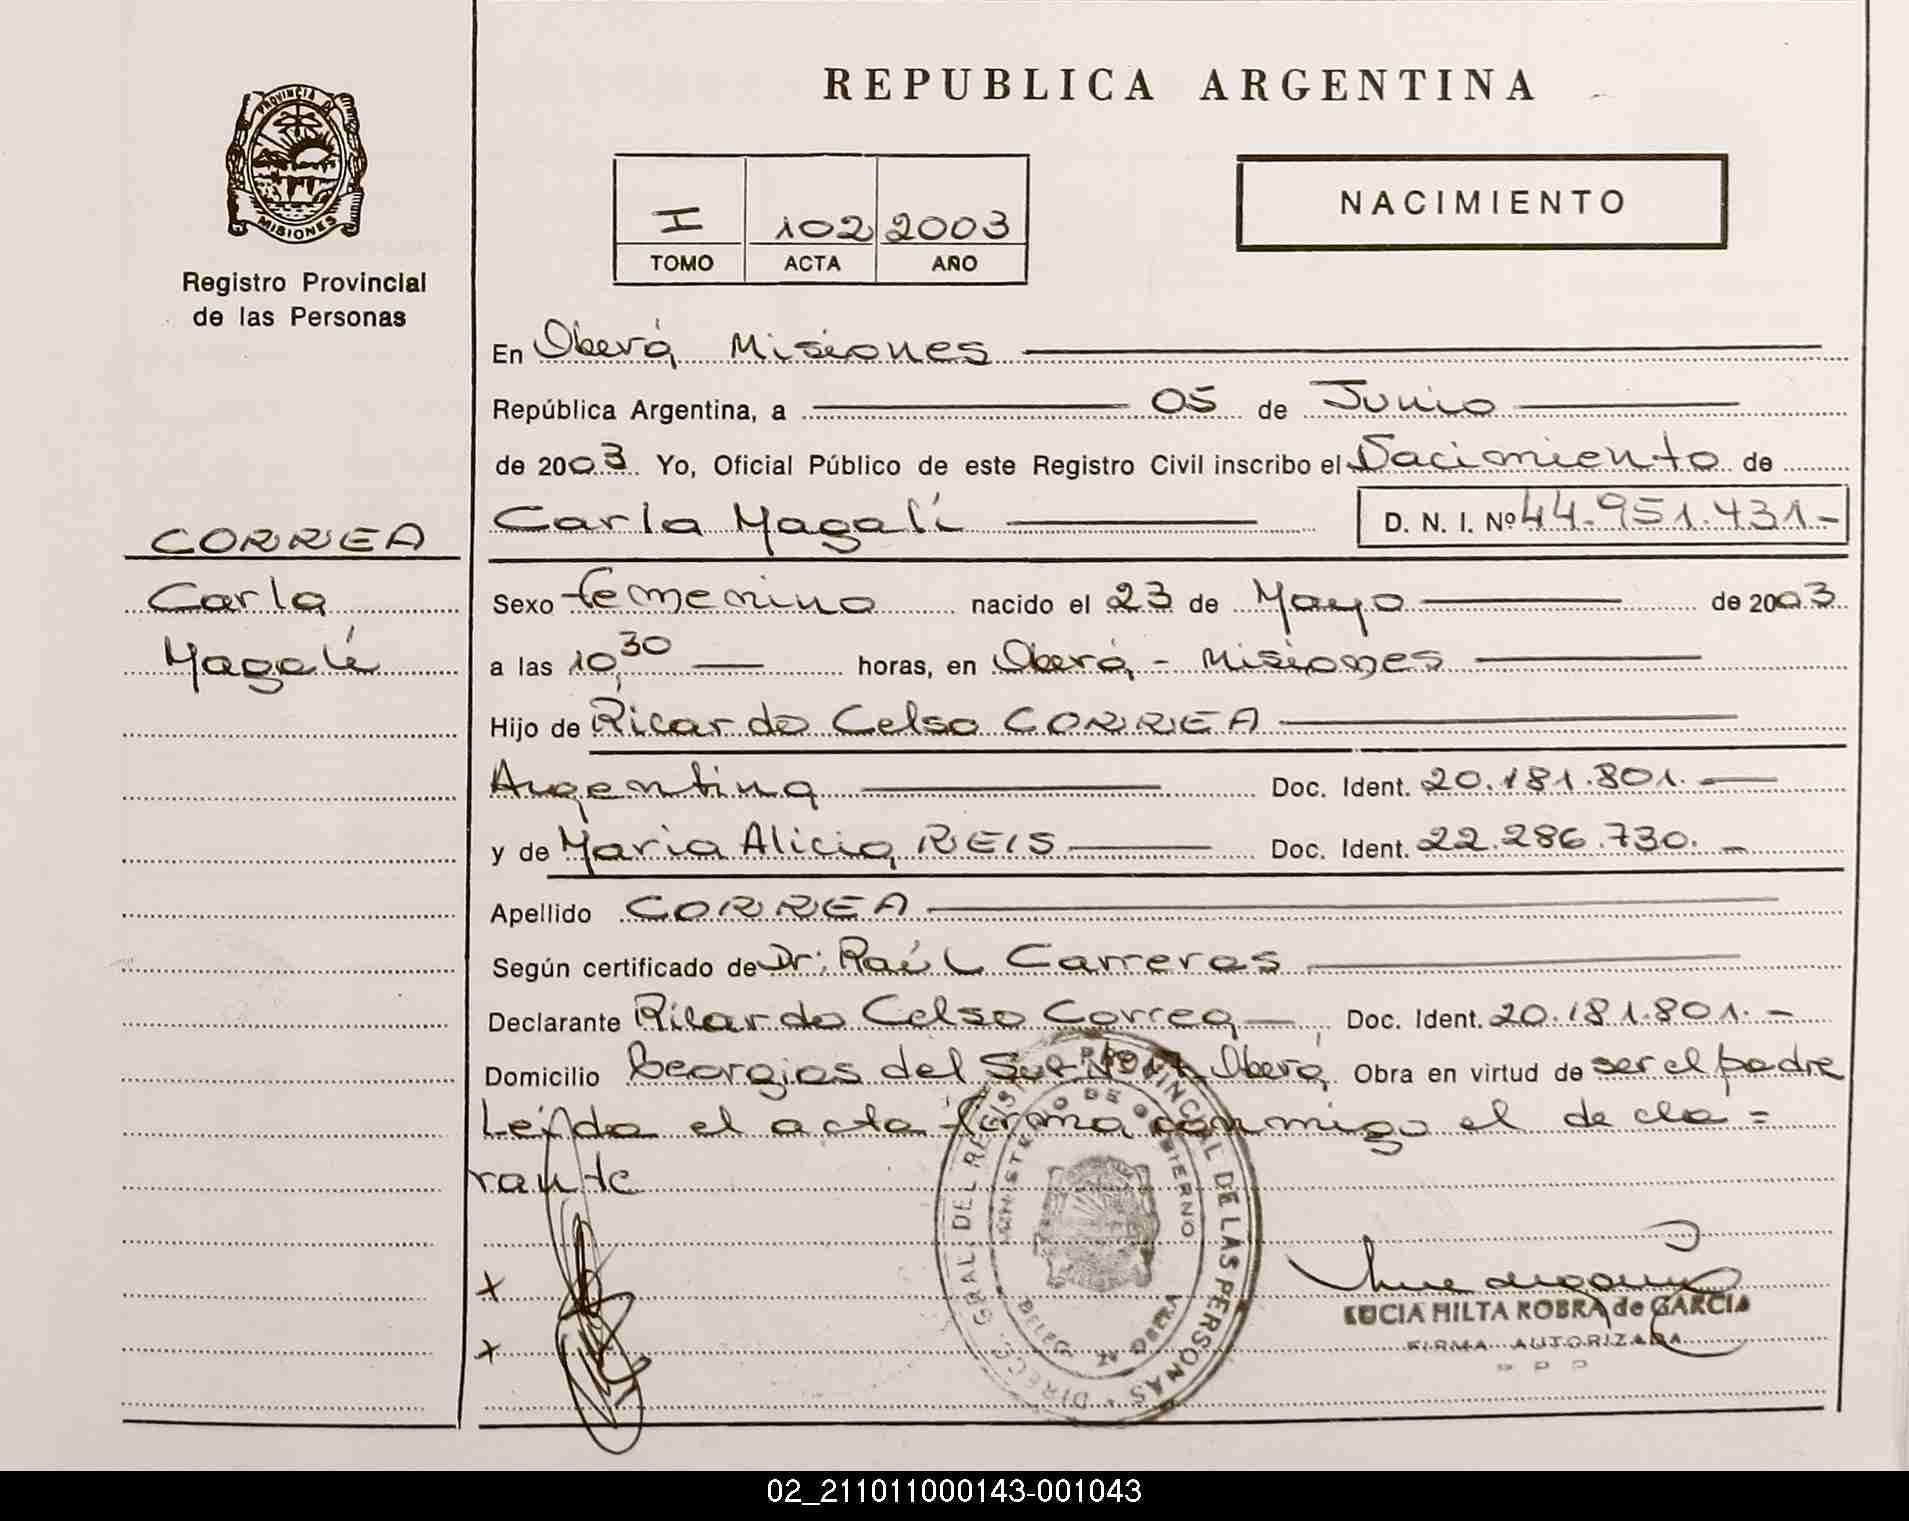 PROVINCIA D
MISIONES
Registro Provincial
de las Personas
CORREA
Carla
Magalí
REPUBLICA ARGENTINA
I 102 2003
TOMO ACTA AÑO
NACIMIENTO
En Oberá Misiones
República Argentina, a 05 de Junio
de 2003 Yo, Oficial Público de este Registro Civil inscribo el Nacimiento de
Carla Magalí D. N. I. Nº 44.951.431-
Sexo femenino nacido el 23 de Mayo de 2003
a las 10,30 horas, en Oberá - Misiones
Hijo de Ricardo Celso CORREA
Argentina Doc. Ident. 20.181.801.
y de Maria Alicia REIS Doc. Ident. 22.286.730.
Apellido CORREA
Según certificado de Dr: Raúl Carreras
Declarante Ricardo Celso Correa Doc. Ident. 20.181.801.-
Domicilio Georgias del Sur Oberá Obra en virtud de ser el padre
Leída el acta firma conmigo el decla=
rante
x
x
DIRECC. GRAL. DEL REGIST. PROVINCIAL DE LAS PERSONAS
MINISTERIO DE GOBIERNO
OBERA
LUCIA HILTA ROBRA de GARCIA
FIRMA AUTORIZADA
02_211011000143-001043